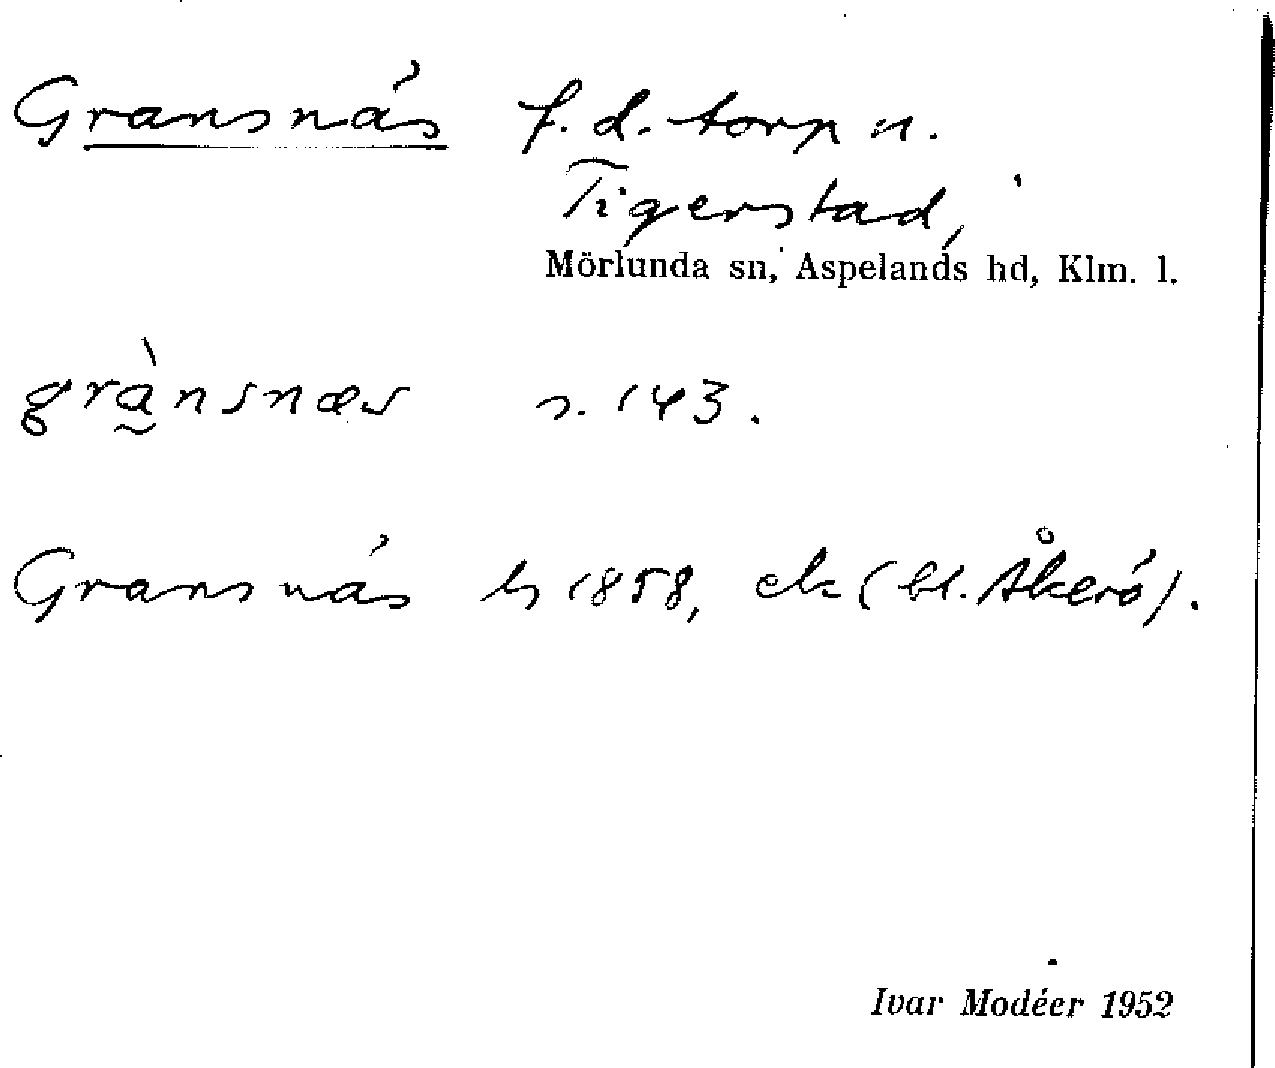 Gransnäs f. d. torp u.
Tigerstad,
Mörlunda sn, Aspelands hd, Klm. l.
grànsnæs s. 143.
Gransnäs hfl 1858, ek (bl. Åkerö).
Ivar Modéer 1952